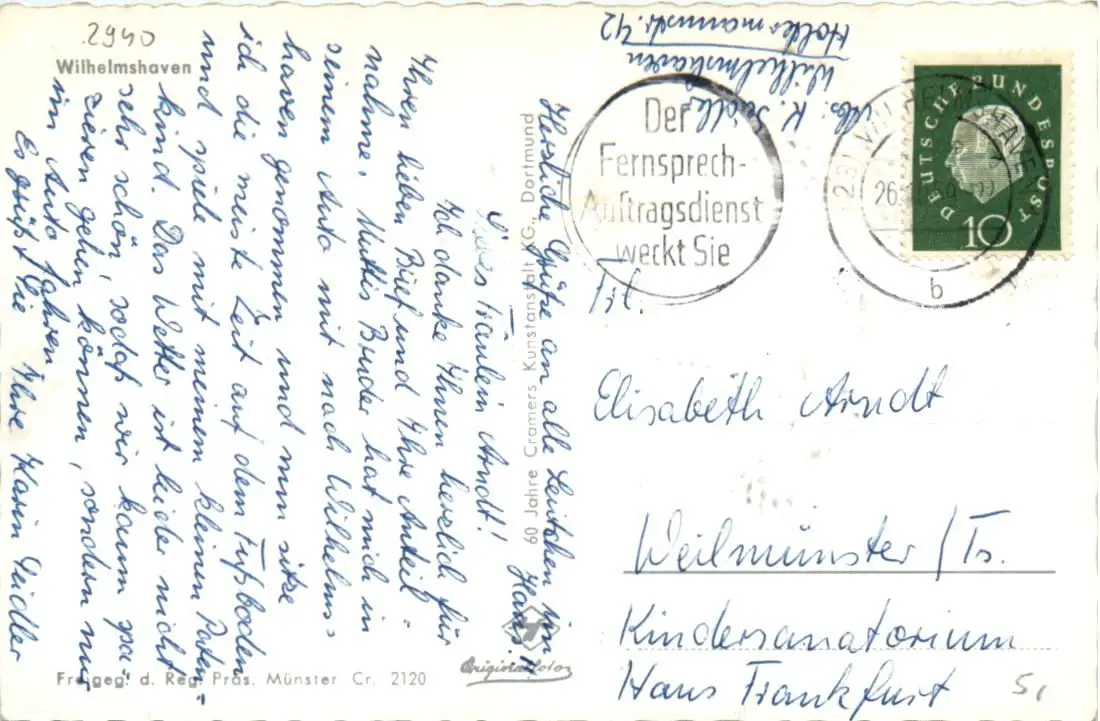 2940
Wilhelmshaven
Liebes Fräulein Arndt!
Ich danke Ihnen herzlich für
Ihren lieben Brief und Ihre Anteil=
nahme. Muttis Bruder hat mich in
seinem Auto mit nach Wilhelms=
haven genommen und nun sitze
ich die meiste Zeit auf dem Fußboden
und spiele mit meinem kleinen Paten=
kind. Das Wetter ist leider nicht
sehr schön, sodaß wir kaum spa=
zieren gehen können, sondern nur
im Auto fahren.
Es grüßt Sie Ihre Karin Seidler
Herzliche Grüße an alle Leutchen im Haus!!
60 Jahre Cramers Kunstanstalt KG., Dortmund
Originalfoto
Freigeg. d. Reg. Präs. Münster Cr. 2120
Abs. K. Seidler
Wilhelmshaven
Der
Fernsprech-
Auftragsdienst
weckt Sie
(23) WILHELMSHAVEN
b
DEUTSCHE BUNDESPOST
10
Frl.
Elisabeth Arndt
Weilmünster/Ts.
Kindersanatorium
Haus Frankfurt